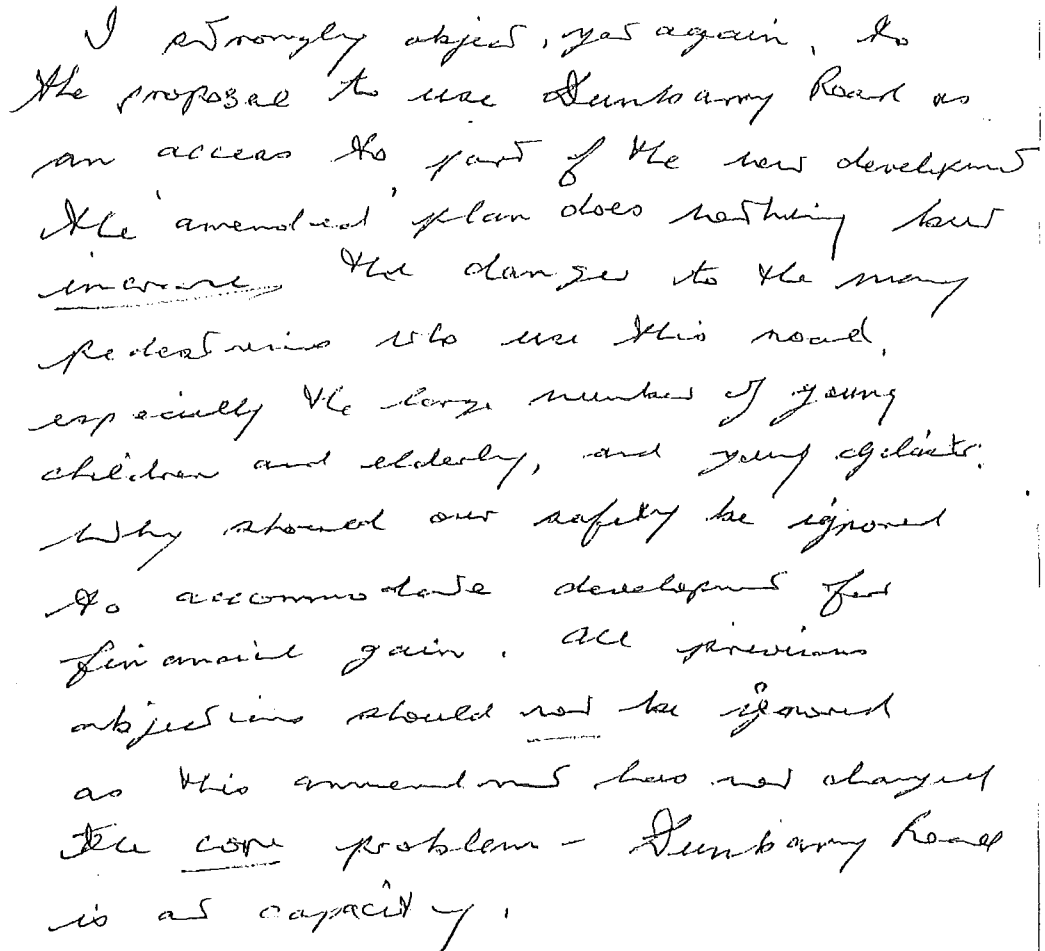 I strongly object, yet again, to
the proposal to use Dunbarry Road as
an access to part of the new development
the 'amended' plan does nothing but
increase the danger to the many
pedestrians who use this road,
especially the large number of young
children and elderly, and young cyclists.
Why should our safety be ignored
to accommodate development for
financial gain. All previous
objections should not be ignored
as this ammendment has not changed
the core problem - Dunbarry Road
is at capacity.